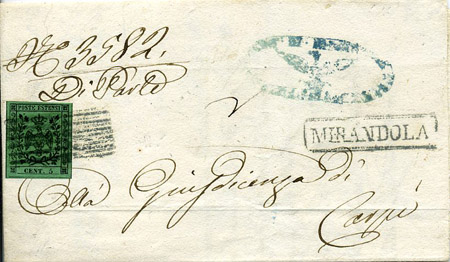 No 3582.
Di Parto
POSTE ESTENSI
CENT. 5
MIRANDOLA
Alla Giusdicenza di
Carpi